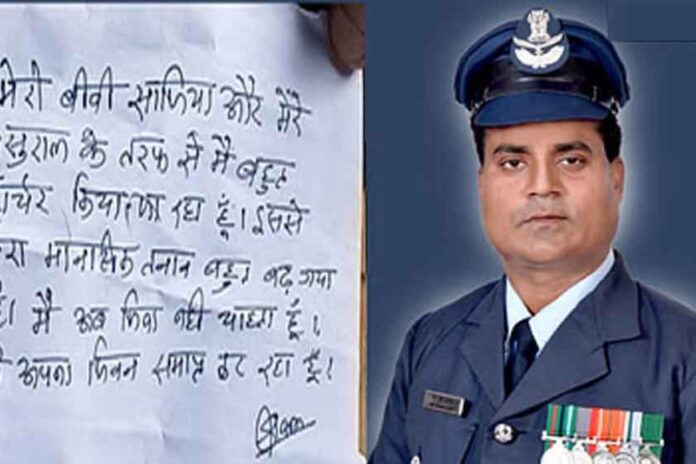 मेरी बीवी साजिया और मेरे
सुराल के तरफ से मै बहुत
र्चर किया जा रहा हूँ। इससे
रा मानसिक तनाव बहुत बढ़ गया
है। मै अब जिना नही चाहता हूँ।
अपना जिवन समाप्त कर रहा हूँ।